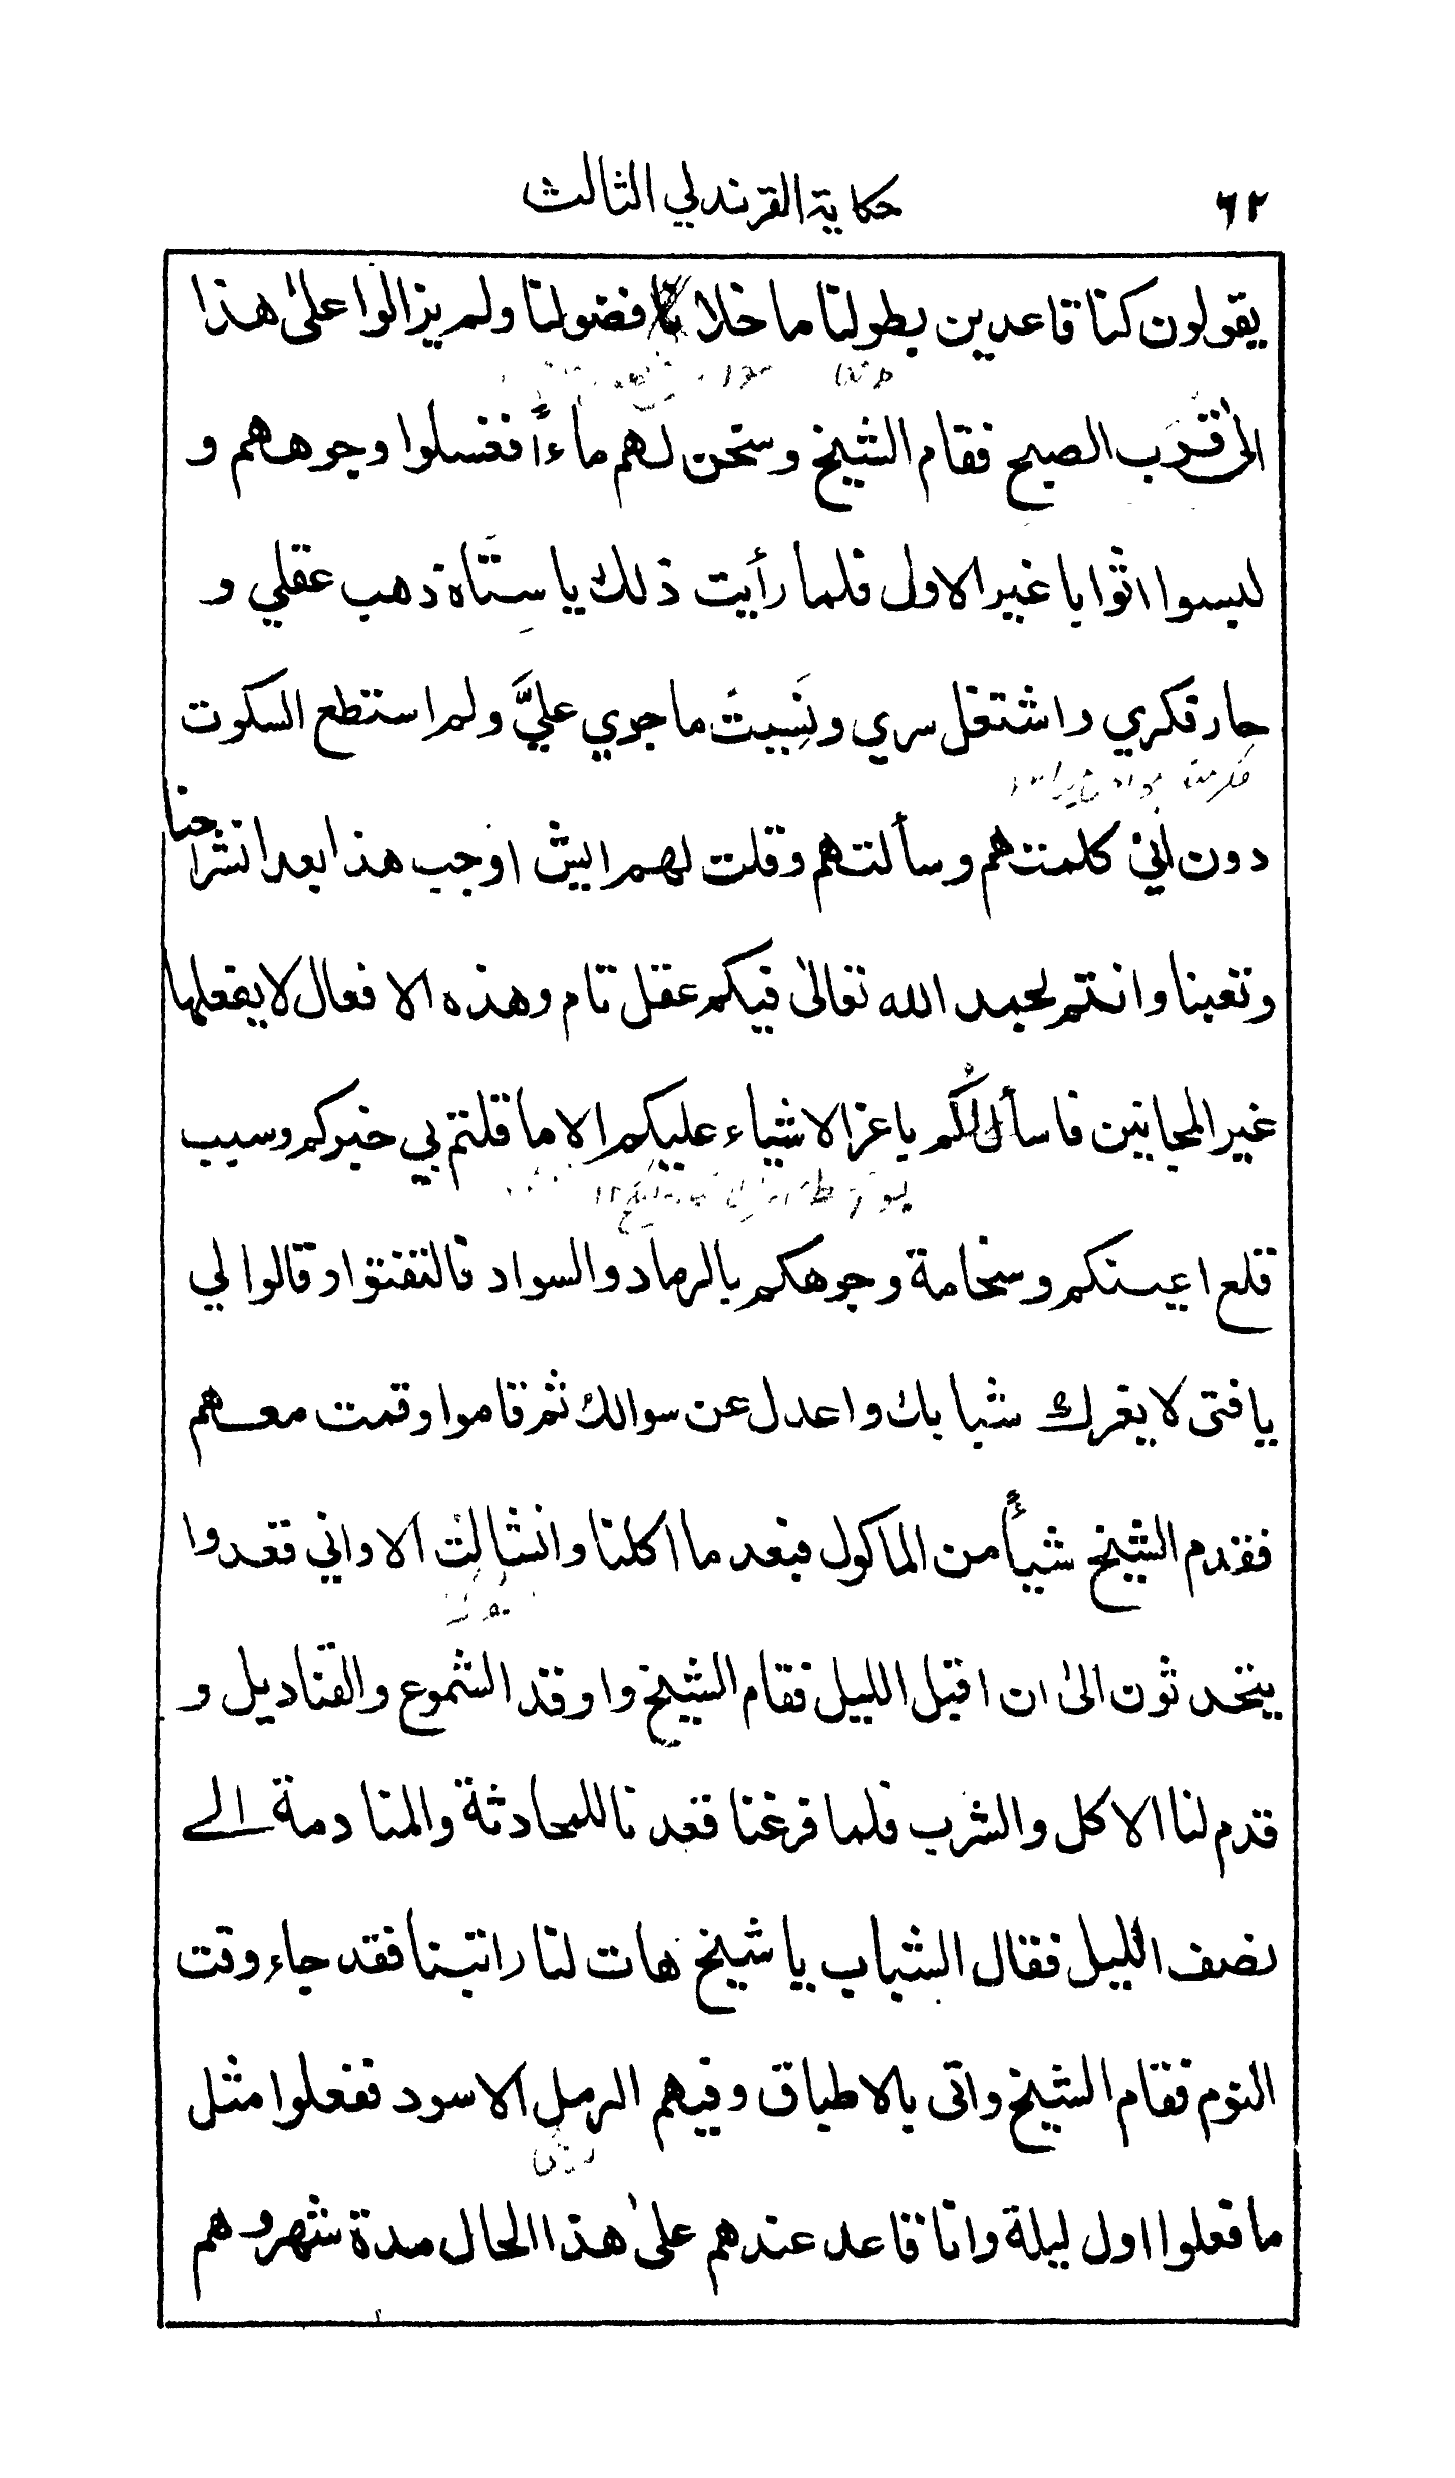 ٦٢ حكاية القرندلي الثالث
يقولون كنا قاعدين بطولنا ما خلانا فضولنا ولم يزالوا على هذا
الى قرب الصبح فقام الشيخ وسخن لهم ماءً فغسلوا وجوههم و
لبسوا اثوابا غير الاول فلما رأيت ذلك يا ستاه ذهب عقلي و
حار فكري واشتغل سري ونسيت ما جري عليَّ ولم استطع السكوت
دون اني كلمتهم وسألتهم وقلت لهم ايش اوجب هذا بعد انشراحنا
وتعبنا وانتم بحمد الله تعالى فيكم عقل تام وهذه الافعال لا يفعلها
غير المجانين فاسألكم باعز الاشياء عليكم الا ما قلتم بي خبركم وسبب
قلع اعينكم وسخامة وجوهكم بالرماد والسواد فالتفتوا وقالوا لي
يا فتى لا يغرك شبابك واعدل عن سوالك ثم قاموا وقمت معهم
فقدم الشيخ شيأً من الماكول فبعد ما اكلنا وانشالت الاواني قعدوا
يتحدثون الى ان اقبل الليل فقام الشيخ واوقد الشموع والقناديل و
قدم لنا الاكل والشرب فلما فرغنا قعدنا للمحادثة والمنادمة الے
نصف الليل فقال الشباب يا شيخ هات لنا راتبنا فقد جاء وقت
النوم فقام الشيخ واتى بالاطباق وفيهم الرمل الاسود ففعلوا مثل
ما فعلوا اول ليلة وانا قاعد عندهم على هذا الحال مدة شهر وهم